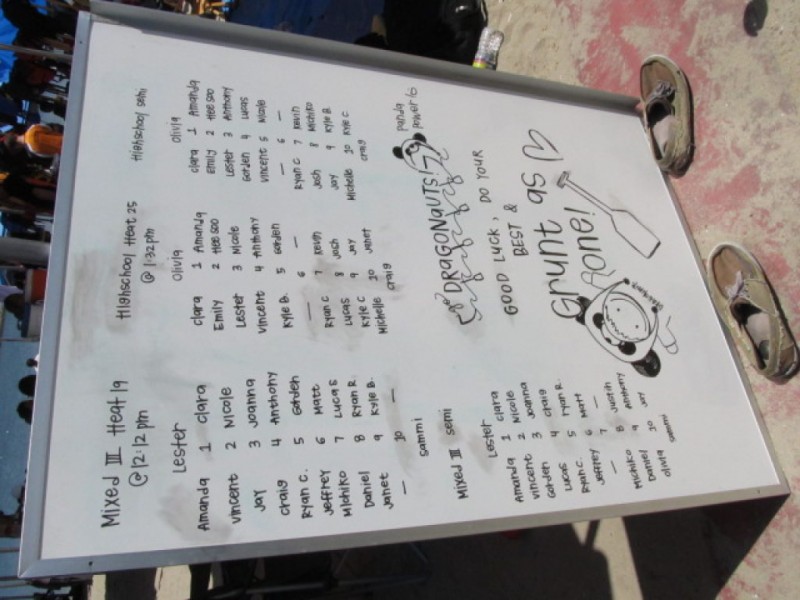 Mixed III Heat 19
@ 12:12 pm
Lester
Amanda 1 Clara
Vincent 2 Nicole
Jay 3 Joanna
Craig 4 Anthony
Ryan C. 5 Gorden
Jeffrey 6 Matt
Michiko 7 Lucas
Daniel 8 Ryan R.
Janet 9 Kyle B.
— 10 —
Sammi
Mixed III semi
Lester
Amanda 1 Clara
Vincent 2 Nicole
Gorden 3 Joanna
Lucas 4 Craig
Ryan C. 5 Ryan R.
Jeffrey 6 Matt
— 7 —
Michiko 8 Justin
Daniel 9 Anthony
Olivia 10 Jay
Sammi
Highschool Heat 25
@ 1:32pm
Olivia
Clara 1 Amanda
Emily 2 Hee soo
Lester 3 Nicole
Vincent 4 Anthony
Kyle B. 5 Gorden
— 6 —
Ryan C 7 Kevin
Lucas 8 Josh
Kyle C 9 Jay
Michelle 10 Janet
Craig
Highschool semi
Olivia
Clara 1 Amanda
Emily 2 Hee soo
Lester 3 Anthony
Gorden 4 Lucas
Vincent 5 Nicole
— 6 —
Ryan C 7 Kevin
Josh 8 Michiko
Jay 9 Kyle B.
Michelle 10 Kyle C
Craig
DRAGONAUTS!
panda
power
GOOD LUCK, DO YOUR
BEST &
Grunt as
one!